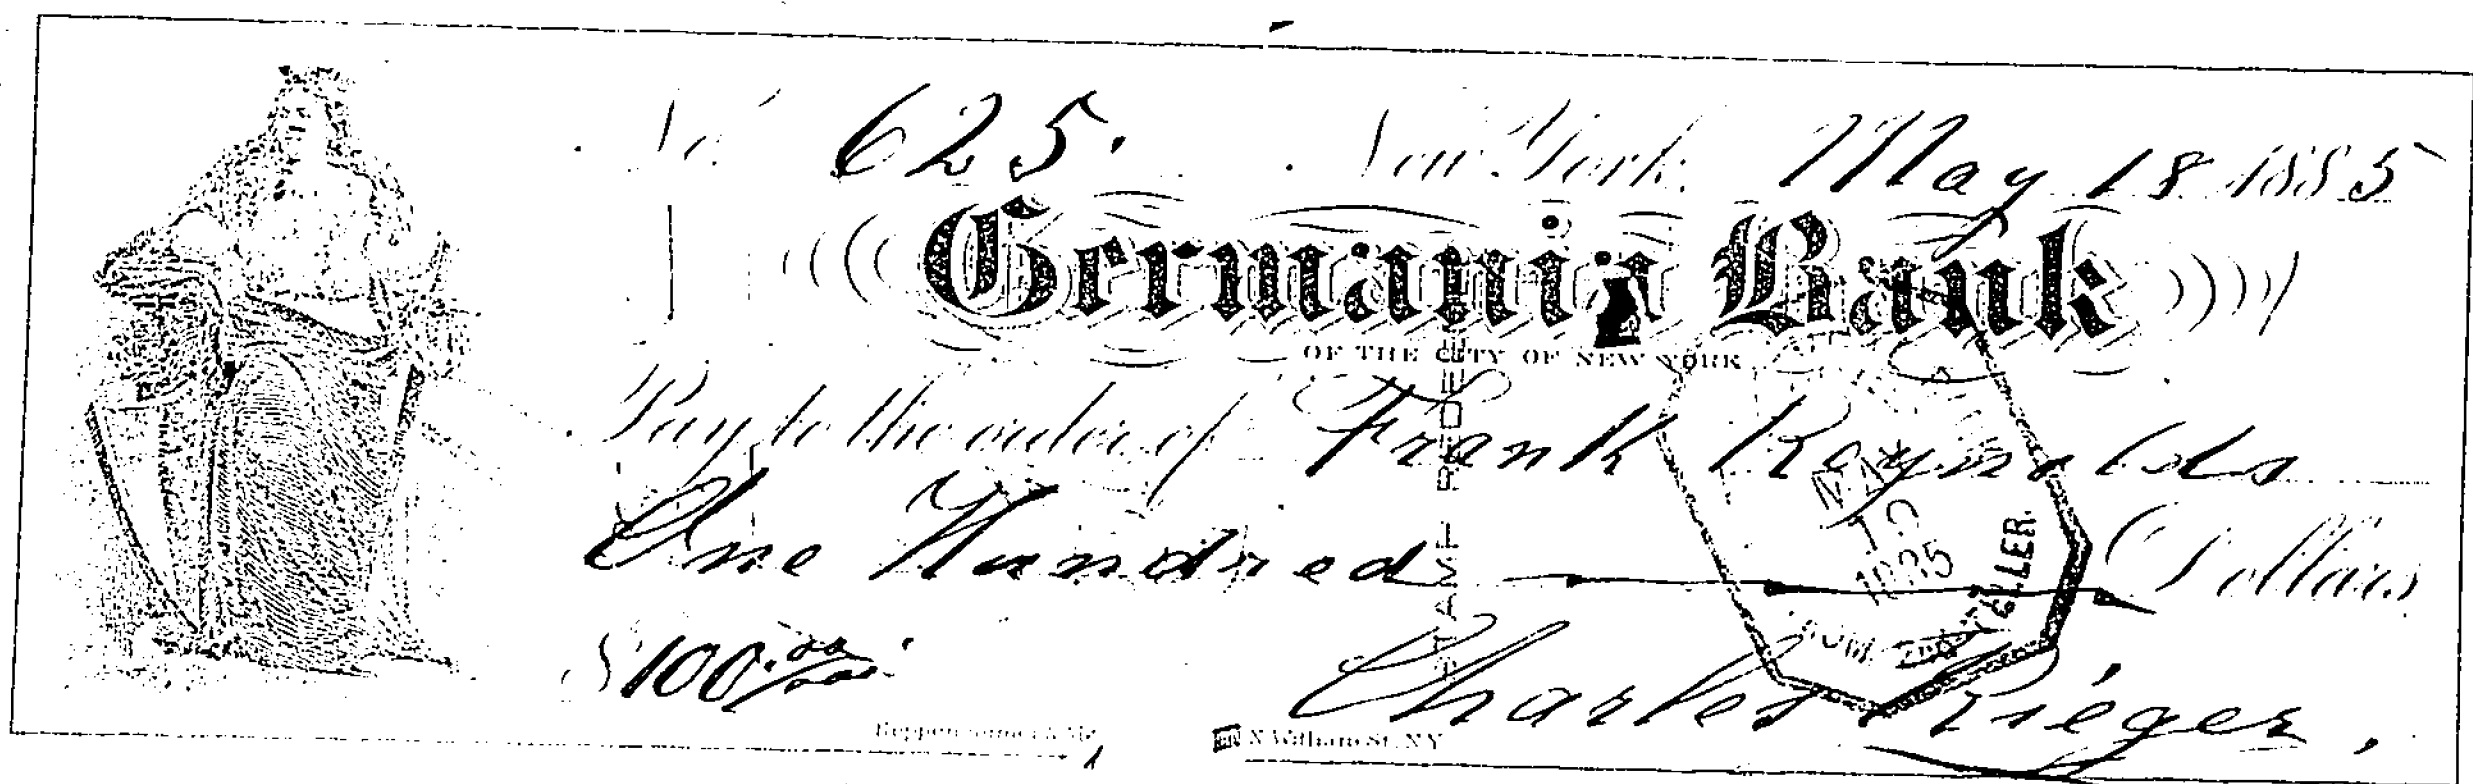 No. 625. New York, May 18 1885
Germania Bank
OF THE CITY OF NEW YORK
Pay to the order of Frank Reynolds
One Hundred Dollars
$100.00
Charles Rieger.
MAY
1885
TELLER.
William St. N.Y.